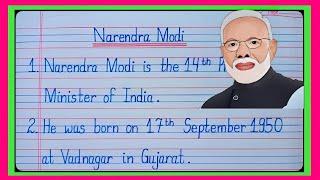 Narendra Modi
1. Narendra Modi is the 14th P
Minister of India.
2. He was born on 17th September 1950
at Vadnagar in Gujarat.